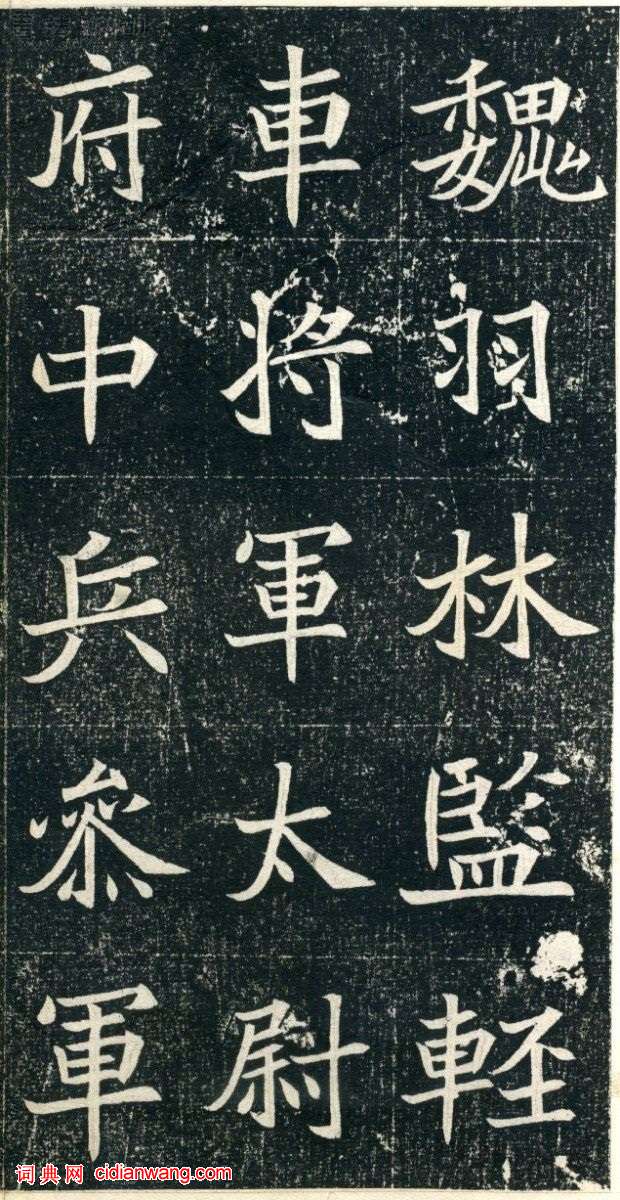 魏羽林監軽
車将軍太尉
府中兵叅軍
词典网 cidianwang.com